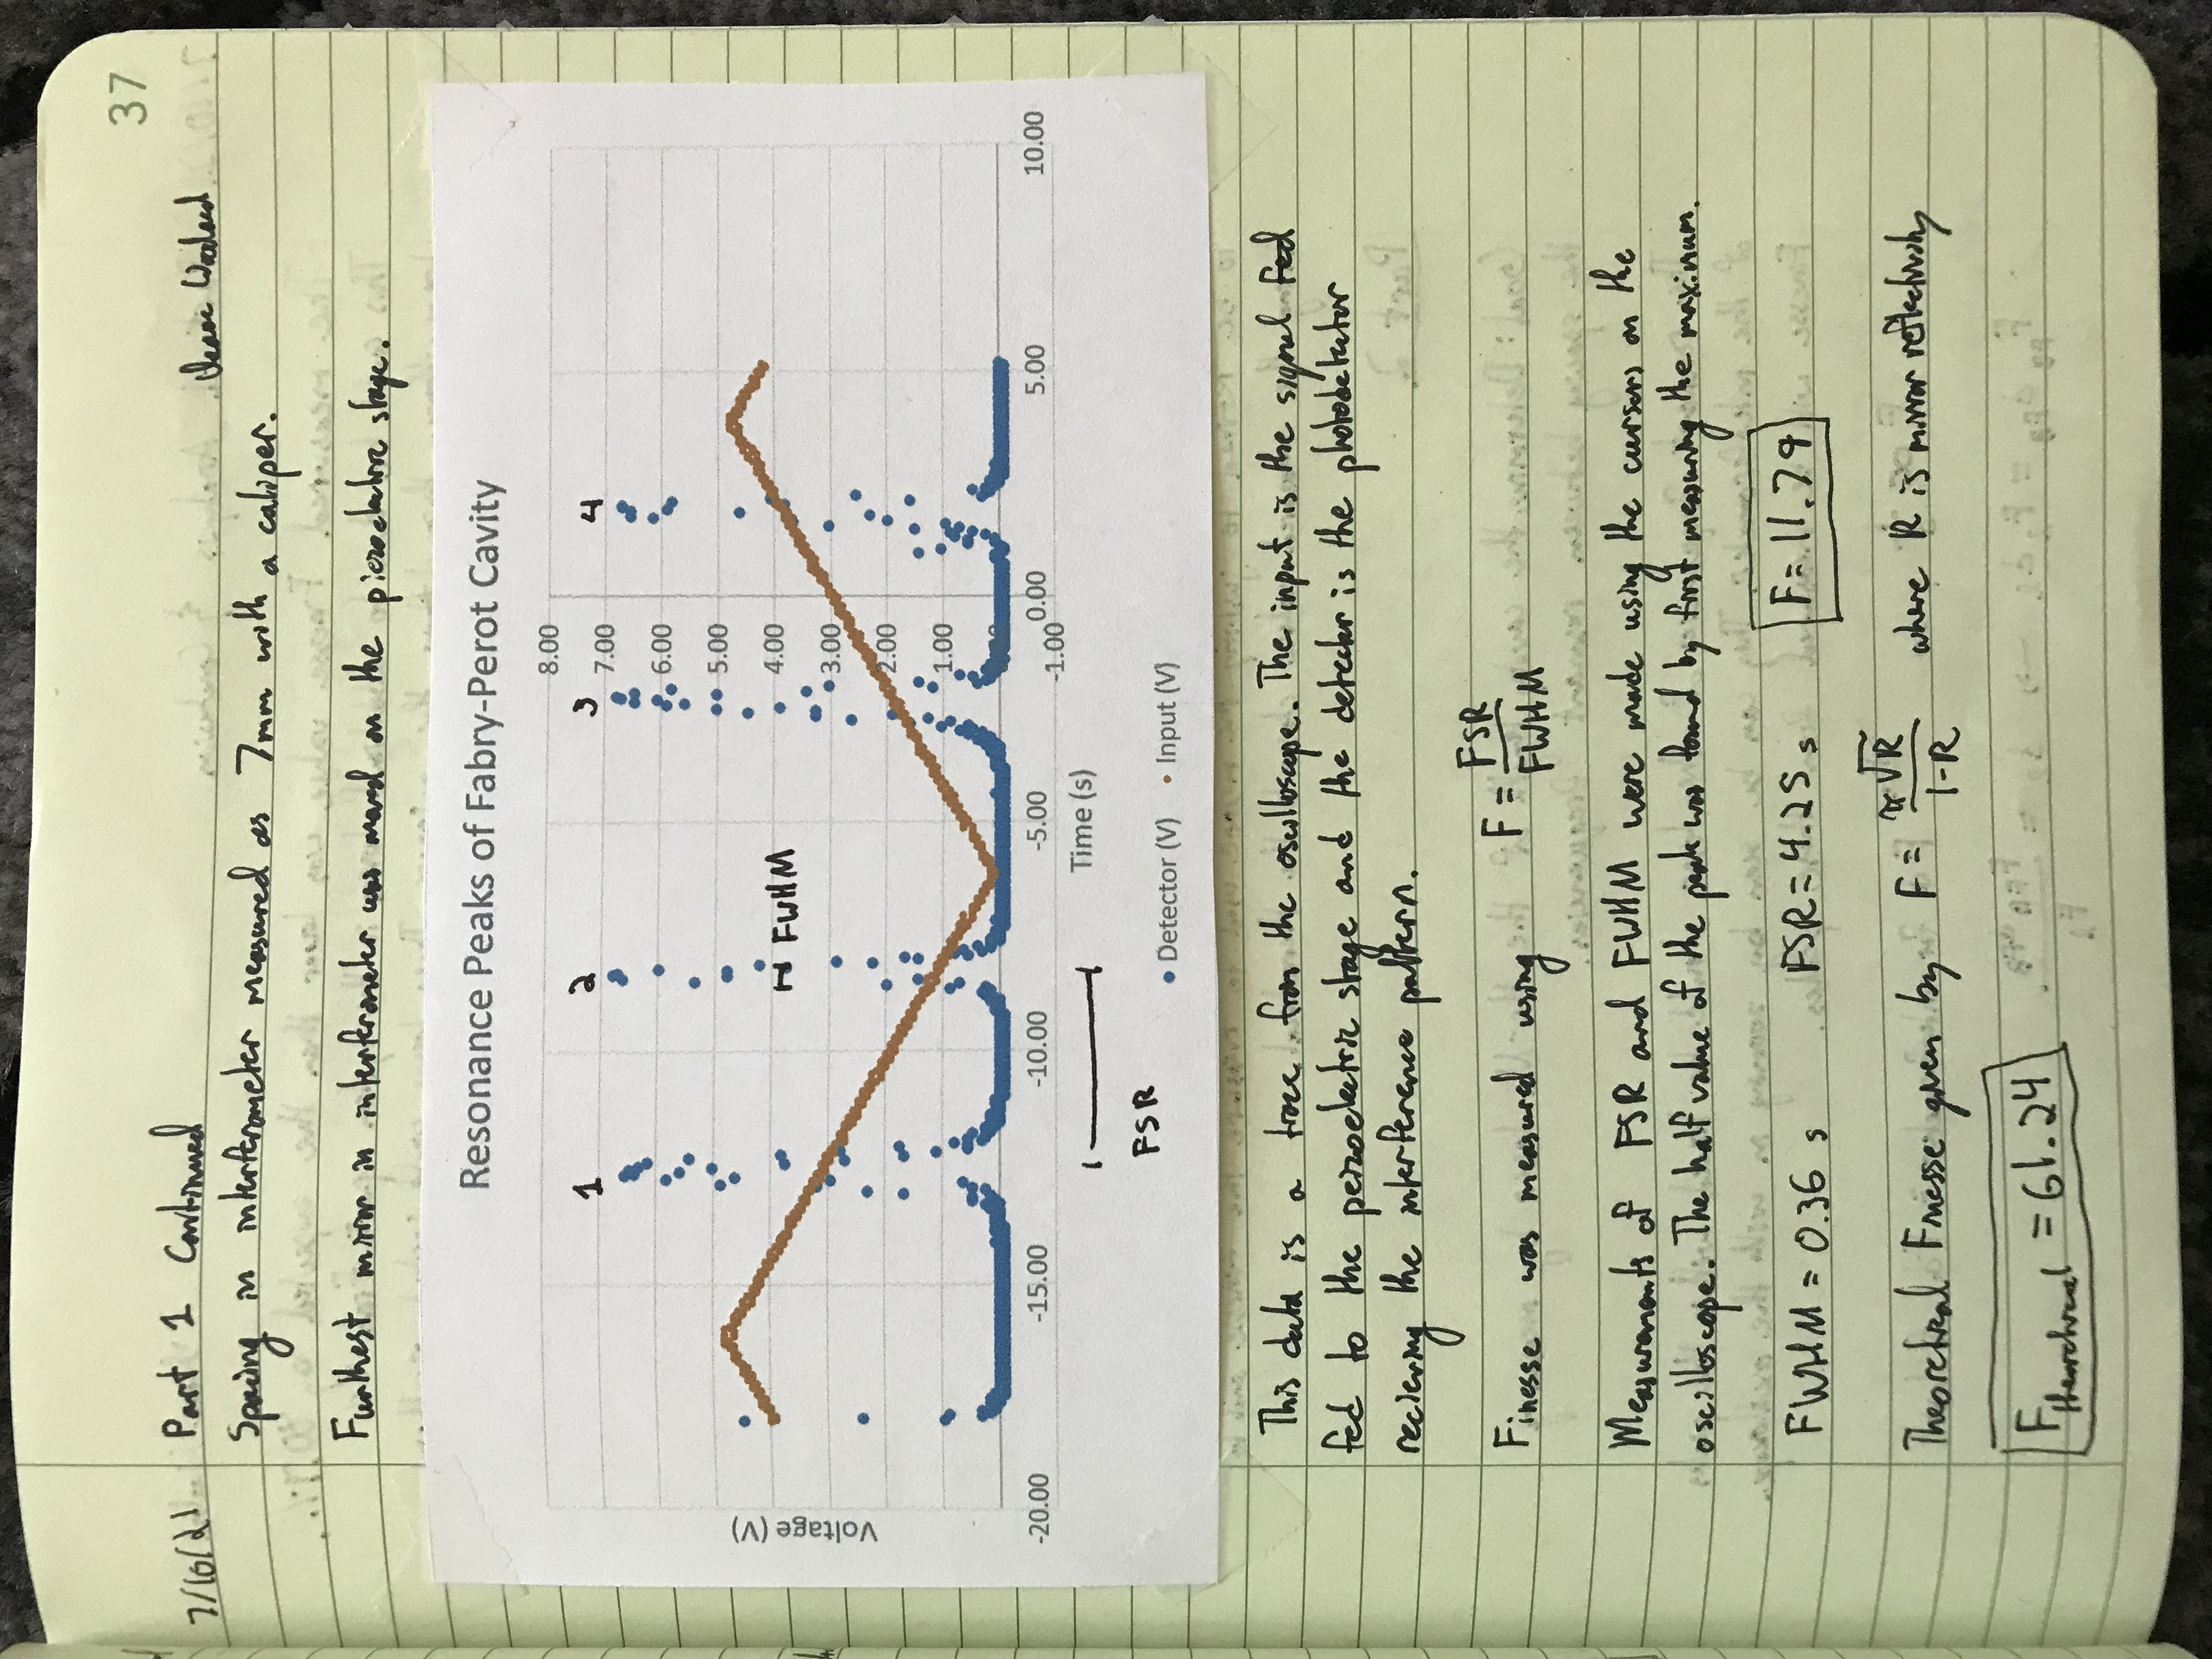 37
7/10/21 Part 1 Continued
Spacing in interferometer measured as 7mm with a caliper.
Furthest mirror in interferometer was moved on the piezoelectric stage.
Resonance Peaks of Fabry-Perot Cavity
8.00
1 2 3 4
7.00
6.00
5.00
4.00
FWHM
3.00
2.00
1.00
Voltage (V)
-20.00 -15.00 -10.00 -5.00 0.00 5.00 10.00
-1.00
Time (s)
FSR
Detector (V) Input (V)
This data is a trace from the oscilloscope. The input is the signal fed
fed to the peizoelectric stage and the detector is the photodetector
recieving the interference pattern.
Finesse was measured using F = FSR / FWHM
Measurements of FSR and FWHM were made using the cursors on the
oscilloscope. The half value of the peak was found by first measuring the maximum.
FWHM = 0.36 s FSR = 4.25 s F = 11.79
Theoretical Finesse given by F = π√R / 1-R where R is mirror reflectivity
F theoretical = 61.24